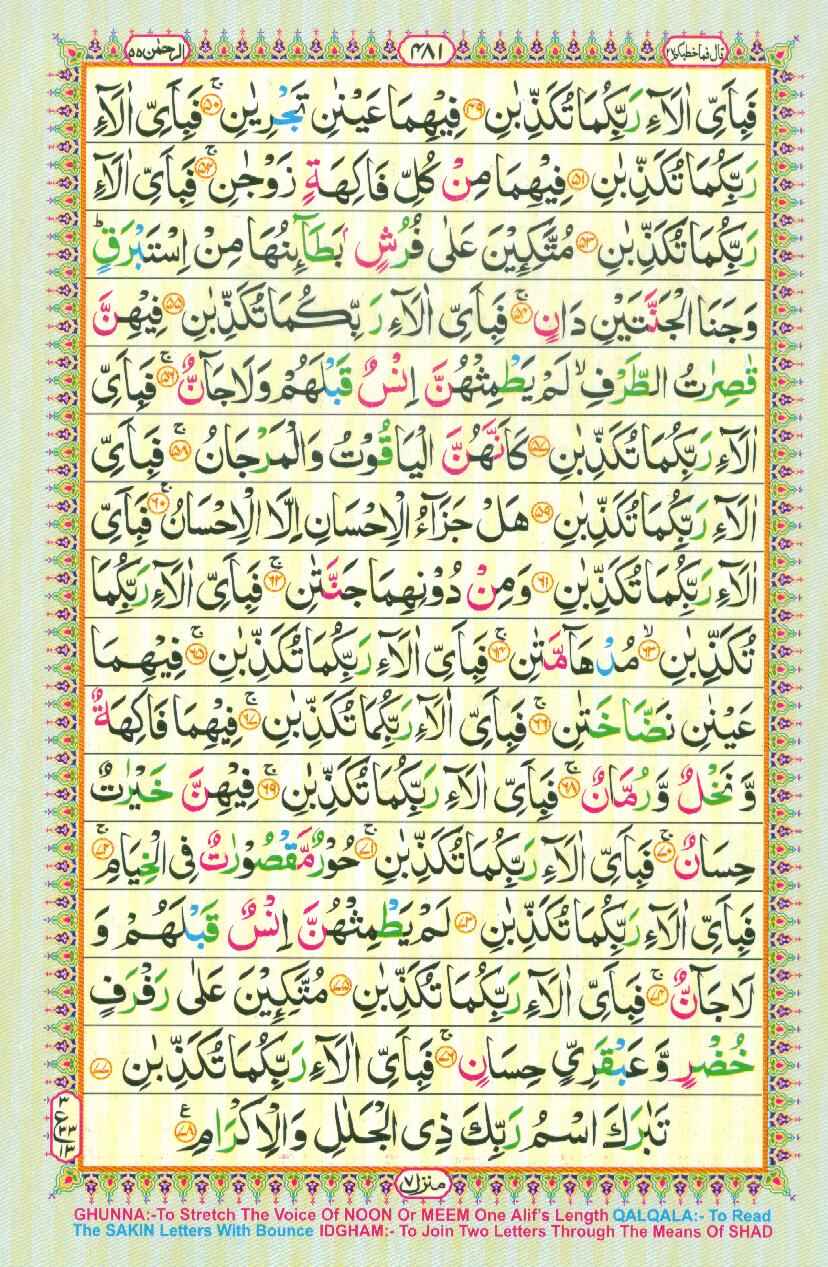 قال فما خطبکم ٢٧
۴۸۱
الرحمٰن ۵۵
فَبِاَىِّ اٰلَآءِ رَبِّكُمَا تُكَذِّبٰنِ ۝۴۹ فِيْهِمَا عَيْنٰنِ تَجْرِيٰنِ ۝ۚ۵۰ فَبِاَىِّ اٰلَآءِ
رَبِّكُمَا تُكَذِّبٰنِ ۝۵۱ فِيْهِمَا مِنْ كُلِّ فَاكِهَةٍ زَوْجٰنِ ۝ۚ۵۲ فَبِاَىِّ اٰلَآءِ
رَبِّكُمَا تُكَذِّبٰنِ ۝۵۳ مُتَّكِـِٕيْنَ عَلٰى فُرُشٍۭ بَطَآئِنُهَا مِنْ اِسْتَبْرَقٍؕ
وَجَنَا الْجَنَّتَيْنِ دَانٍ ۝ۚ۵۴ فَبِاَىِّ اٰلَآءِ رَبِّكُمَا تُكَذِّبٰنِ ۝۵۵ فِيْهِنَّ
قٰصِرٰتُ الطَّرْفِۙ لَمْ يَطْمِثْهُنَّ اِنْسٌ قَبْلَهُمْ وَلَا جَآنٌّ ۝ۚ۵۶ فَبِاَىِّ
اٰلَآءِ رَبِّكُمَا تُكَذِّبٰنِ ۝۵۷ كَاَنَّهُنَّ الْيَاقُوْتُ وَالْمَرْجَانُ ۝ۚ۵۸ فَبِاَىِّ
اٰلَآءِ رَبِّكُمَا تُكَذِّبٰنِ ۝۵۹ هَلْ جَزَآءُ الْاِحْسَانِ اِلَّا الْاِحْسَانُ ۝ۚ۶۰ فَبِاَىِّ
اٰلَآءِ رَبِّكُمَا تُكَذِّبٰنِ ۝۶۱ وَمِنْ دُوْنِهِمَا جَنَّتٰنِ ۝ۚ۶۲ فَبِاَىِّ اٰلَآءِ رَبِّكُمَا
تُكَذِّبٰنِ ۝ۙ۶۳ مُدْهَآمَّتٰنِ ۝ۚ۶۴ فَبِاَىِّ اٰلَآءِ رَبِّكُمَا تُكَذِّبٰنِ ۝ۚ۶۵ فِيْهِمَا
عَيْنٰنِ نَضَّاخَتٰنِ ۝ۚ۶۶ فَبِاَىِّ اٰلَآءِ رَبِّكُمَا تُكَذِّبٰنِ ۝ۚ۶۷ فِيْهِمَا فَاكِهَةٌ
وَّنَخْلٌ وَّرُمَّانٌ ۝ۚ۶۸ فَبِاَىِّ اٰلَآءِ رَبِّكُمَا تُكَذِّبٰنِ ۝ۚ۶۹ فِيْهِنَّ خَيْرٰتٌ
حِسَانٌ ۝ۚ۷۰ فَبِاَىِّ اٰلَآءِ رَبِّكُمَا تُكَذِّبٰنِ ۝ۚ۷۱ حُوْرٌ مَّقْصُوْرٰتٌ فِى الْخِيَامِ ۝ۚ۷۲
فَبِاَىِّ اٰلَآءِ رَبِّكُمَا تُكَذِّبٰنِ ۝ۚ۷۳ لَمْ يَطْمِثْهُنَّ اِنْسٌ قَبْلَهُمْ وَ
لَا جَآنٌّ ۝ۚ۷۴ فَبِاَىِّ اٰلَآءِ رَبِّكُمَا تُكَذِّبٰنِ ۝ۚ۷۵ مُتَّكِـِٕيْنَ عَلٰى رَفْرَفٍ
خُضْرٍ وَّعَبْقَرِىٍّ حِسَانٍ ۝ۚ۷۶ فَبِاَىِّ اٰلَآءِ رَبِّكُمَا تُكَذِّبٰنِ ۝۷۷
تَبٰرَكَ اسْمُ رَبِّكَ ذِى الْجَلٰلِ وَالْاِكْرَامِ ۝ࣖ۷۸
٣
ع
٣٣
١٣
منزل ٧
GHUNNA:-To Stretch The Voice Of NOON Or MEEM One Alif's Length QALQALA:- To Read
The SAKIN Letters With Bounce IDGHAM:- To Join Two Letters Through The Means Of SHAD